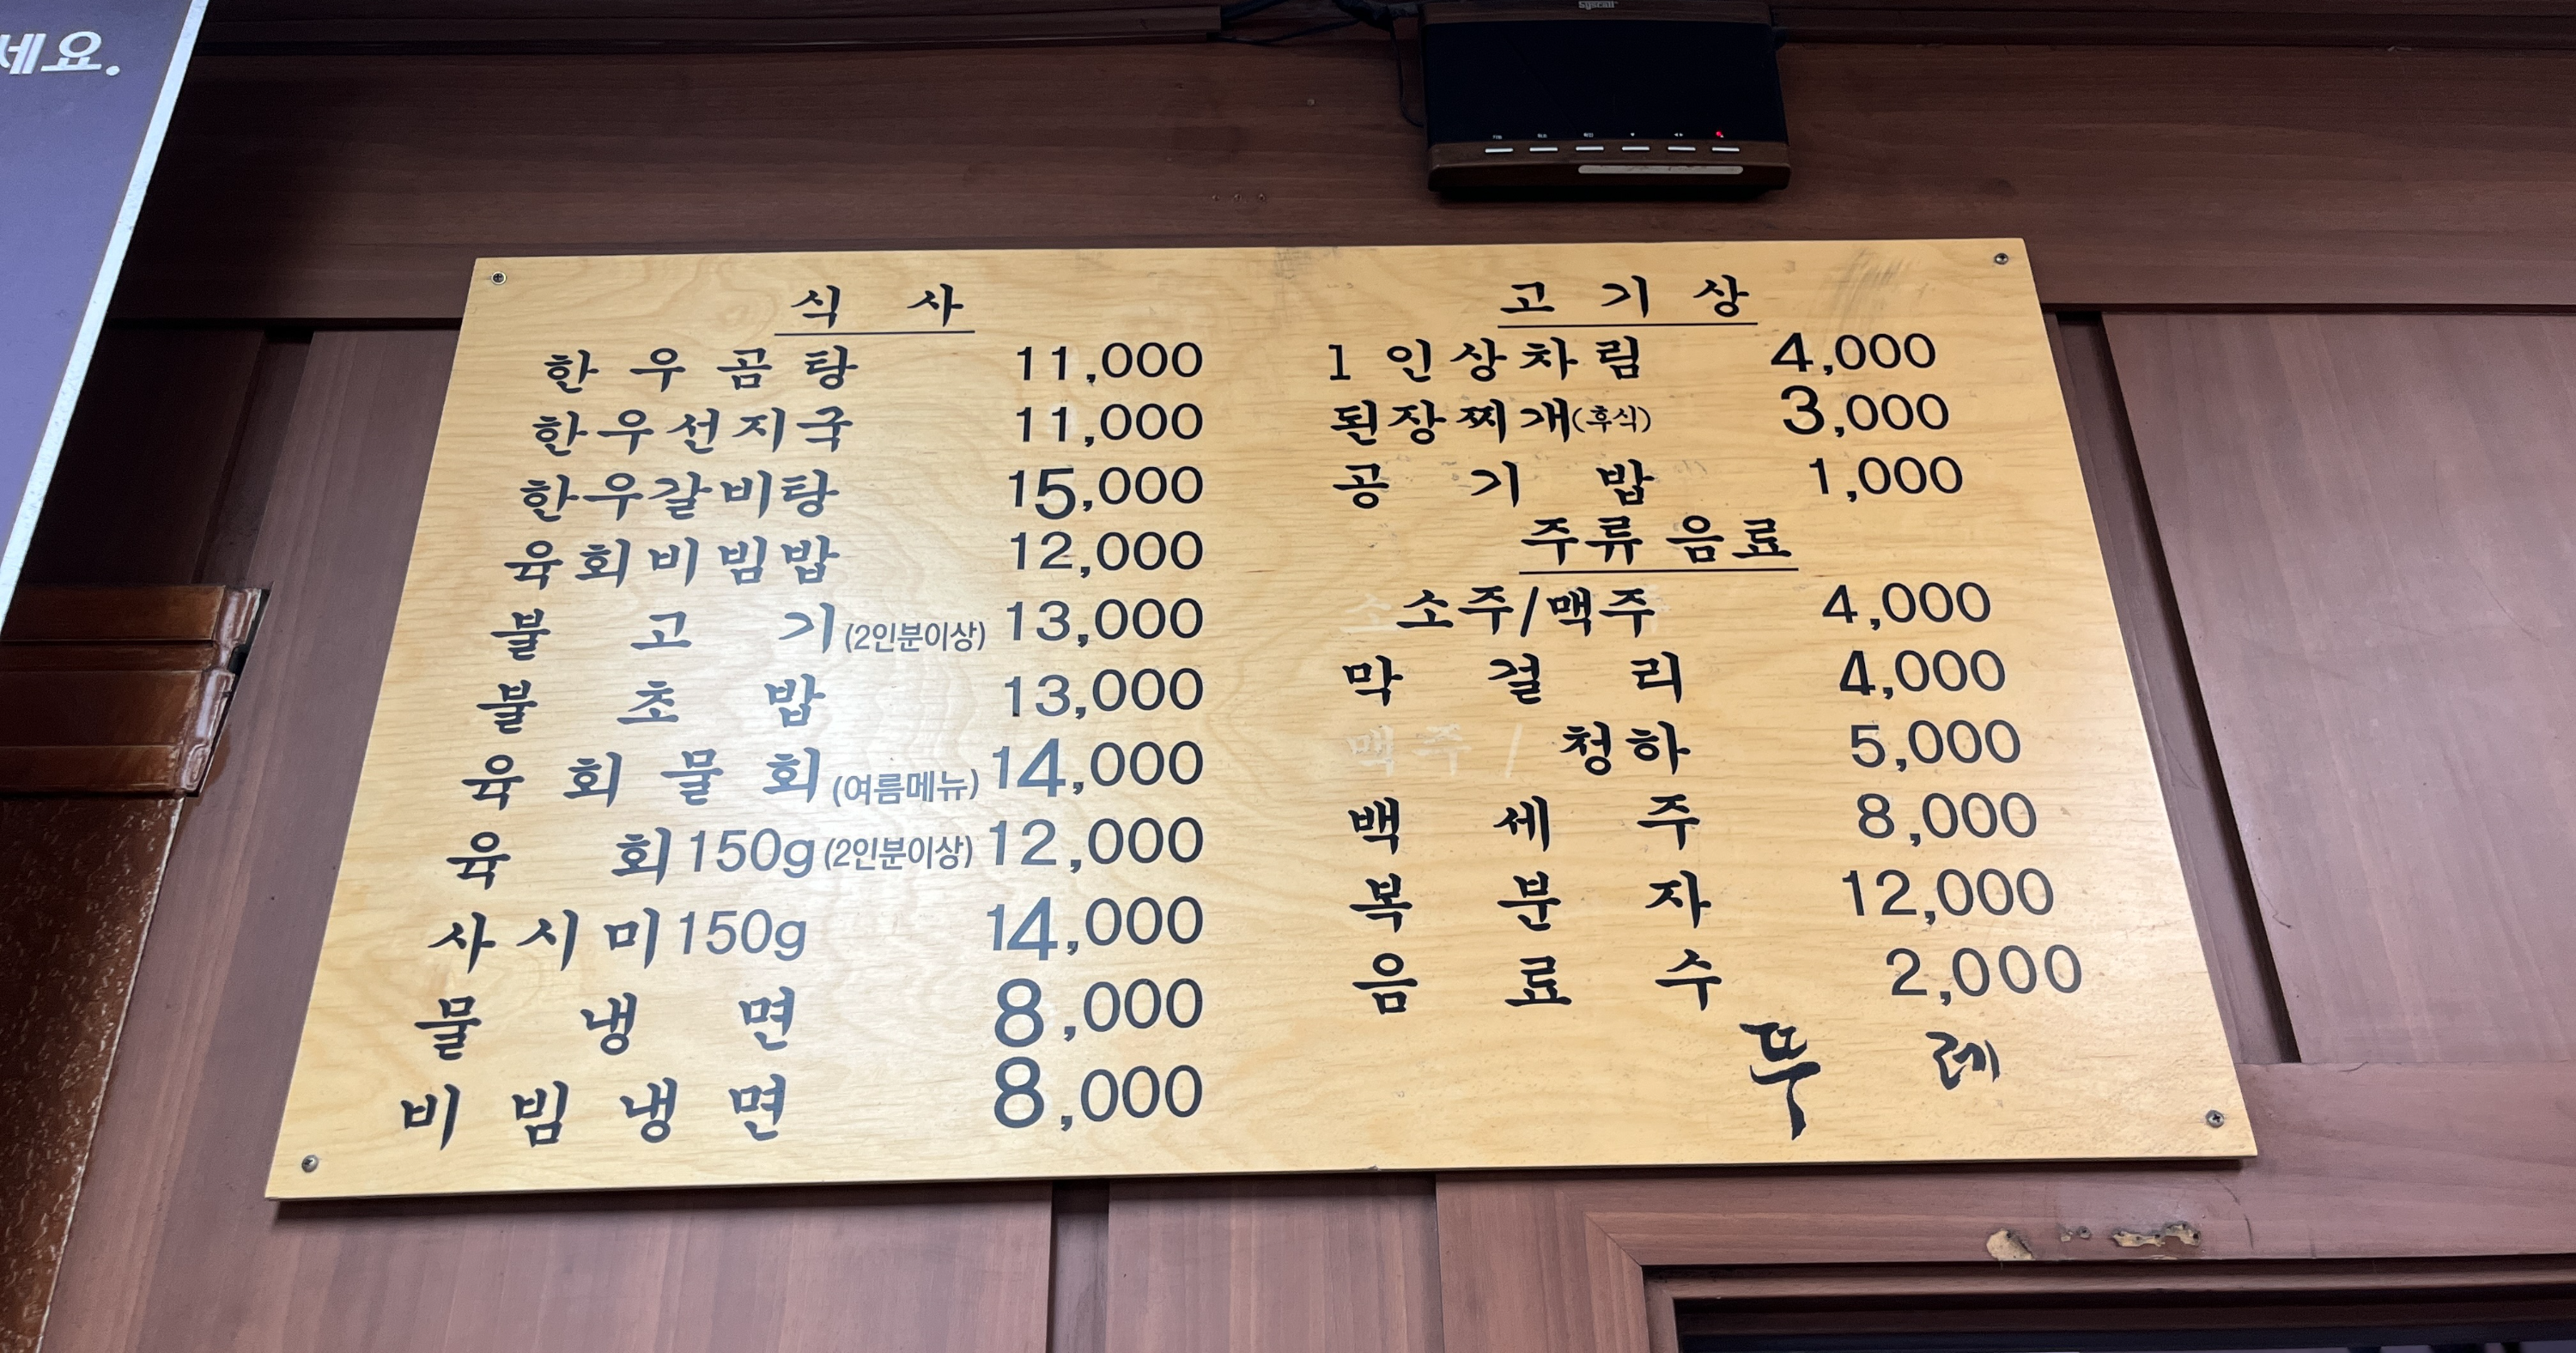 세요.
식 사
한우곰탕 11,000
한우선지국 11,000
한우갈비탕 15,000
육회비빔밥 12,000
불고기(2인분이상) 13,000
불초밥 13,000
육회물회(여름메뉴) 14,000
육회150g(2인분이상) 12,000
사시미150g 14,000
물냉면 8,000
비빔냉면 8,000
고 기 상
1인상차림 4,000
된장찌개(후식) 3,000
공기밥 1,000
주류 음료
소주/맥주 4,000
막걸리 4,000
맥주/ 청하 5,000
백세주 8,000
복분자 12,000
음료수 2,000
뚜 레